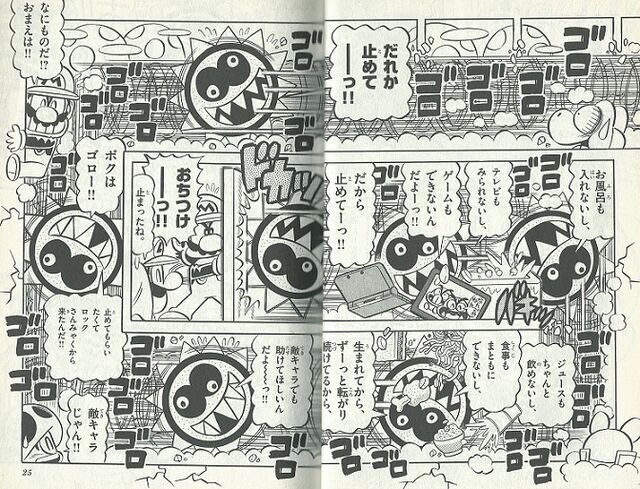 ゴロ
ゴロ
ゴロ
ゴロ
だれか
止めて
ーーっ!!
ゴロ
ゴロ
ゴロ
ゴロ
なにものだ!?
おまえは!!
お風呂も
入れないし、
テレビも
みられないし、
ゲームも
できないん
だよーっ!!
だから
止めてーっ!!
ゴロ
ゴロ
ドカッ
おちつけ
ーーっ!!
止まったね。
ボクは
ゴロー!!
止めてもらい
たくて
ロック
さんみゃくから
来たんだ!!
ジュースも
ちゃんと
飲めないし、
食事も
まともに
できない。
生まれてから、
ずーっと転がり
続けてるから、
ゴロ
ゴロ
ゴロ
ゴロ
敵キャラでも
助けてほしいん
だよ〜〜っ!!
ゴロ
ゴロ
ゴロ
ゴロ
敵キャラ
じゃん!!
25